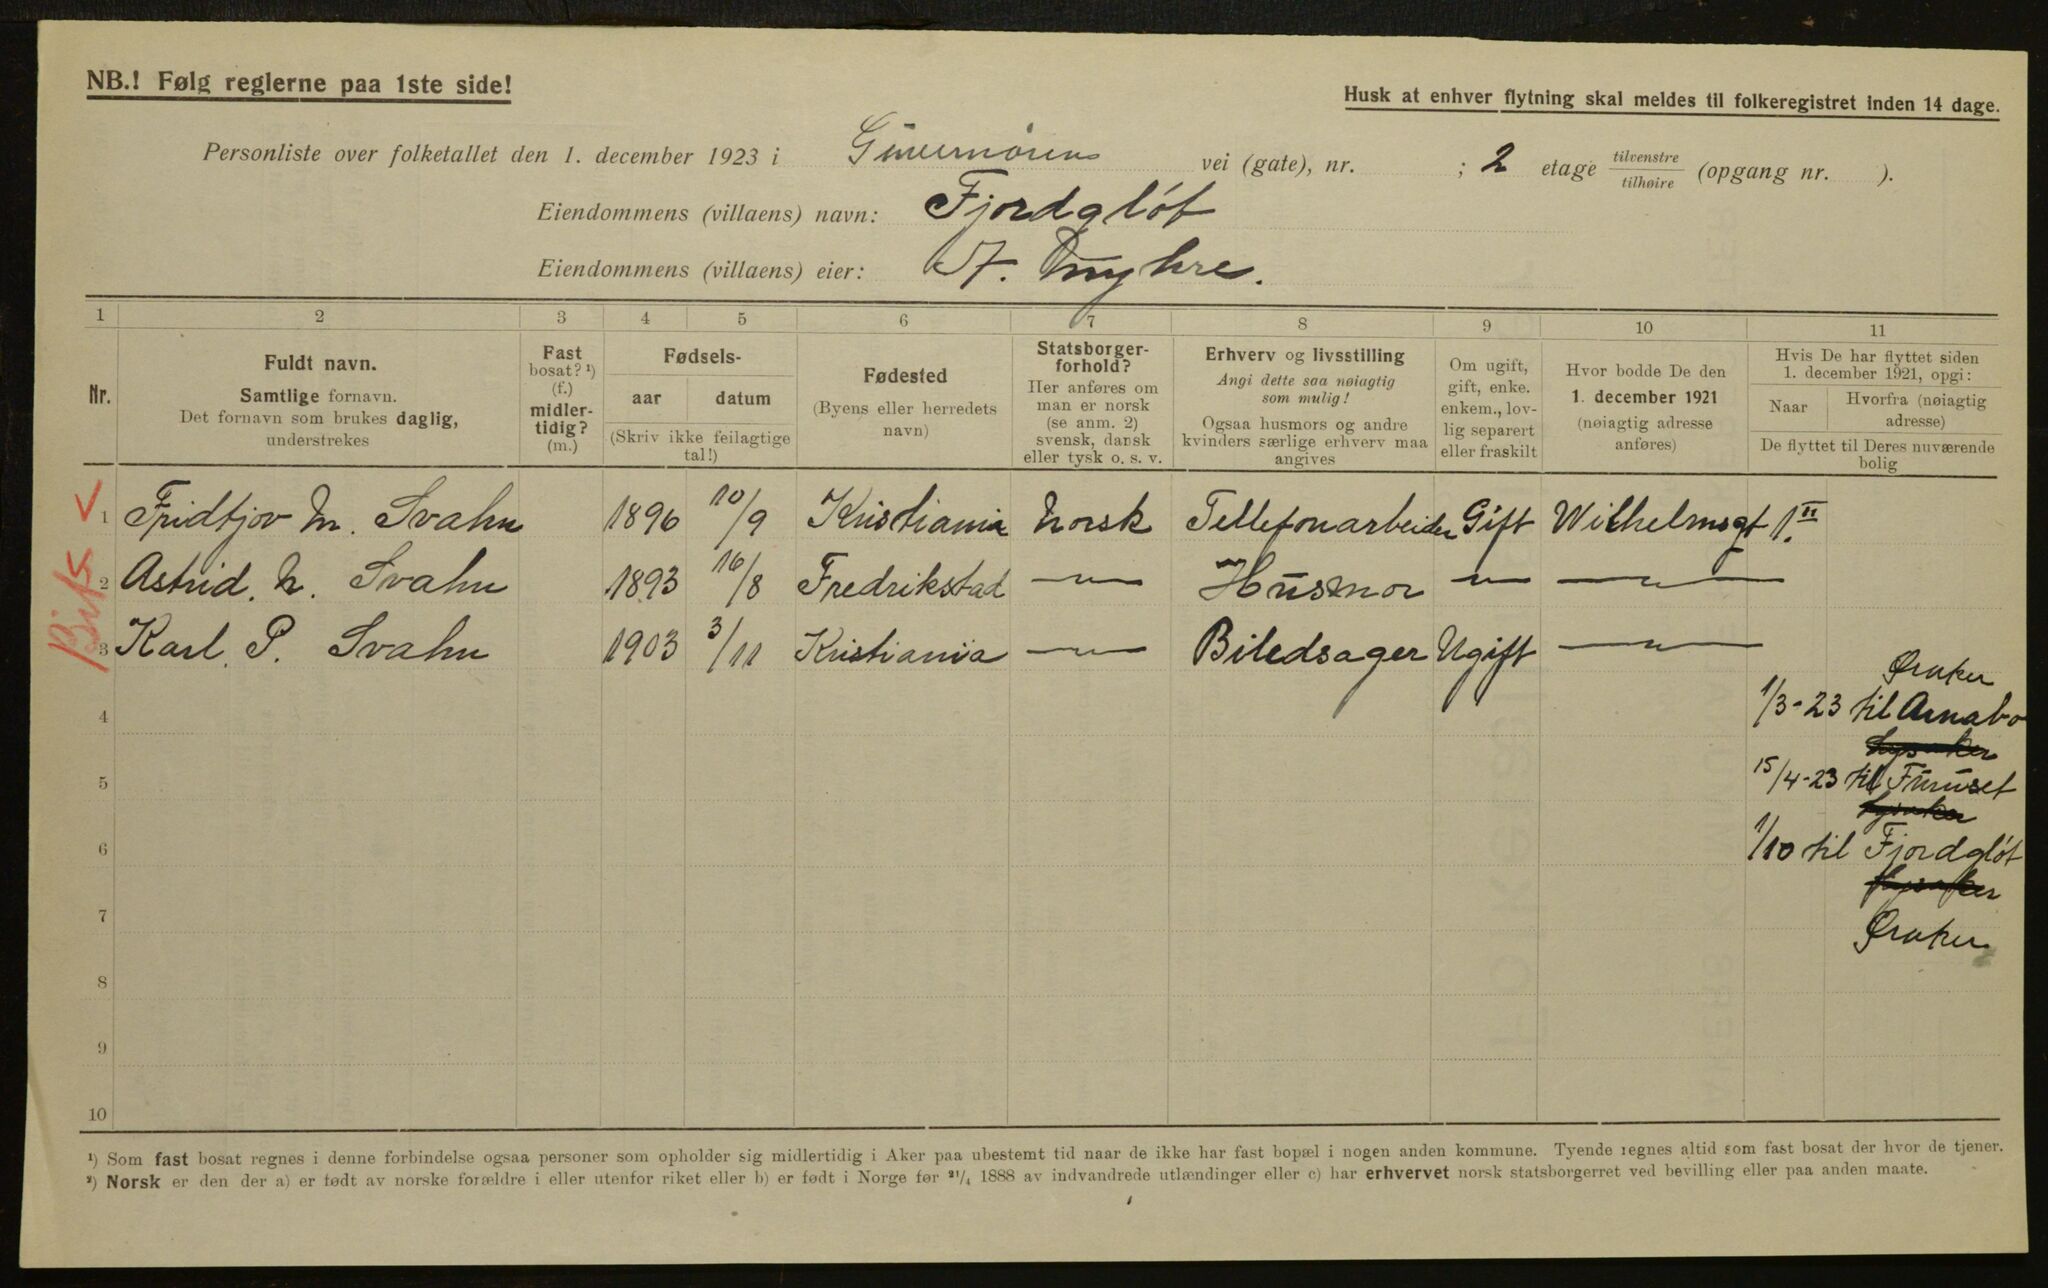 NB.! Følg reglerne paa 1ste side!
Husk at enhver flytning skal meldes til folkeregistret inden 14 dage.
Personliste over folketallet den 1. december 1923 i vei (gate), nr. ; 2 etage tilvenstre tilhøire (opgang nr. ).
Eiendommens (villaens) navn: Fjordgløt
Eiendommens (villaens) eier: Myhre.
1 2 3 4 5 6 7 8 9 10 11
Nr.
Fuldt navn.
Samtlige fornavn.
Det fornavn som brukes daglig,
understrekes
Fast
bosat? ¹)
(f.)
midler-
tidig?
(m.)
Fødsels-
aar datum
(Skriv ikke feilagtige
tal!)
Fødested
(Byens eller herredets
navn)
Statsborger-
forhold?
Her anføres om
man er norsk
(se anm. 2)
svensk, dansk
eller tysk o. s. v.
Erhverv og livsstilling
Angi dette saa nøiagtig
som mulig!
Ogsaa husmors og andre
kvinders særlige erhverv maa
angives
Om ugift,
gift, enke.
enkem., lov-
lig separert
eller fraskilt
Hvor bodde De den
1. december 1921
(nøiagtig adresse
anføres)
Hvis De har flyttet siden
1. december 1921, opgi:
Naar
Hvorfra (nøiagtig
adresse)
De flyttet til Deres nuværende
bolig
1 Fridtjov M. Svahn 1896 10/9 Kristiania Norsk Tellefonarbeider Gift Wilhelmsgt 1. II
2 Astrid. N. Svahn 1893 16/8 Fredrikstad —"— Husmor —"— —"—
3 Karl. P. Svahn 1903 3/11 Kristiania —"— Biledsager Ugift —"—
Øraker
4 1/3-23 til Arnabo
Lysaker
5 15/4-23 til Furuset
Lysaker
6 1/10 til Fjordgløt
Lysaker
7 Øraker
8
9
10
¹) Som fast bosat regnes i denne forbindelse ogsaa personer som opholder sig midlertidig i Aker paa ubestemt tid naar de ikke har fast bopæl i nogen anden kommune. Tyende regnes altid som fast bosat der hvor de tjener.
²) Norsk er den der a) er født av norske forældre i eller utenfor riket eller b) er født i Norge før ²¹/₄ 1888 av indvandrede utlændinger eller c) har erhvervet norsk statsborgerret ved bevilling eller paa anden maate.